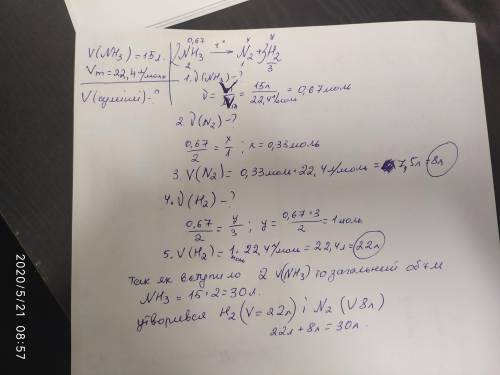 V(NH₃)=15л.
Vm=22,4 л/моль
V(суміші)-?
0,67 x y
2NH₃ →t° N₂+3H₂
2 1 3
1. ν(NH₃)-?
ν= V/Vm = 15л/22,4 л/моль = 0,67 моль
2. ν(N₂)-?
0,67/2 = x/1; x=0,33 моль
3. V(N₂)= 0,33 моль · 22,4 л/моль = 7,5л=8л
4. ν(H₂)-?
0,67/2 = y/3; y= 0,67·3/2 = 1 моль
5. V(H₂)= 1 моль · 22,4 л/моль = 22,4л=22л
Так як вступило 2 ν(NH₃) то загальний об'єм
NH₃ = 15·2=30л.
утворився H₂(V=22л) і N₂(V 8л)
22л+8л=30л.
2020/5/21 08:57